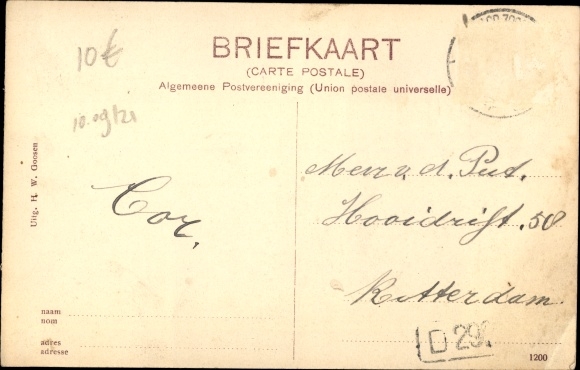 10 €
10.09/21
BRIEFKAART
(CARTE POSTALE)
Algemeene Postvereeniging (Union postale universelle)
Uitg. H. W. Goosen
Cor.
Mevr. v. d. Put.
Hooidrift. 58
Rotterdam.
naam
nom
adres
adresse
D 29
1200